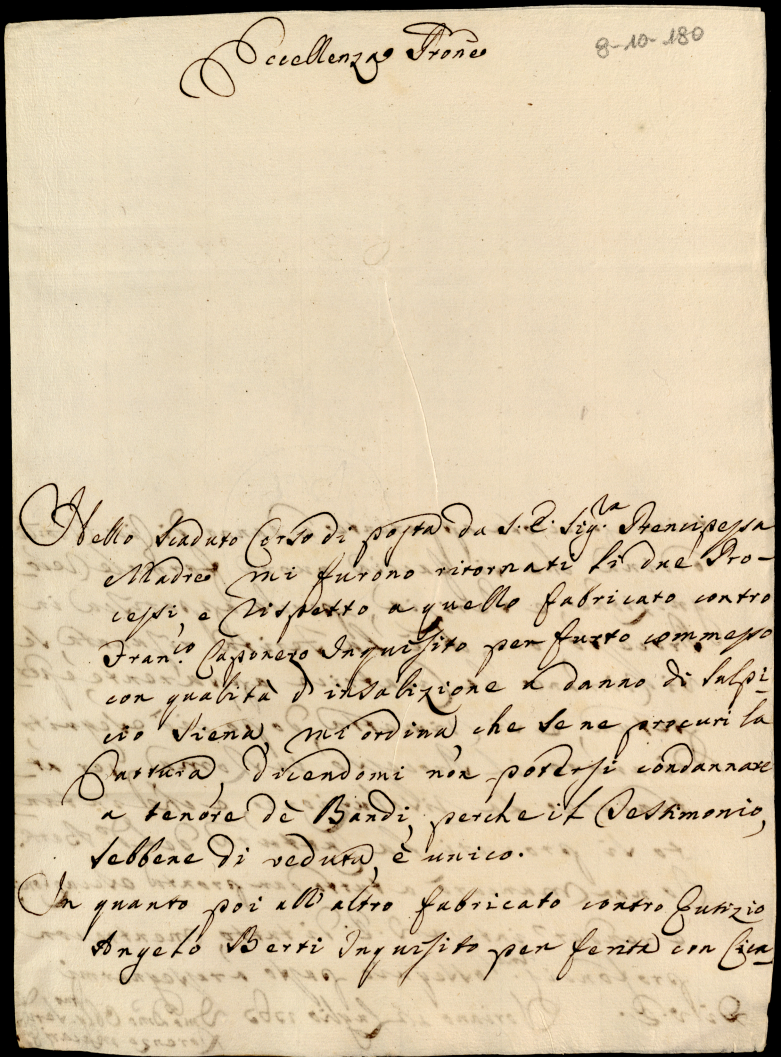 Eccellenza Prone
8-10-180
Nello scaduto Corso di posta da S. E. Sig.ra Prencipessa
Madre mi furono ritornati li due Pro-
cessi, e rispetto a quello fabricato contro
Fran.co Caponero Inquisito per furto commesso
con qualità d'insalizione a danno di Sulpi-
cio Siena, mi ordina, che se ne procuri la
Cattura, dicendomi non potersi condannare
a tenore dè Bandi, perche il Testimonio,
sebbene di veduta, è unico.
In quanto poi all'altro fabricato contro Eutizio
Angelo Berti Inquisito per ferita con Cica-